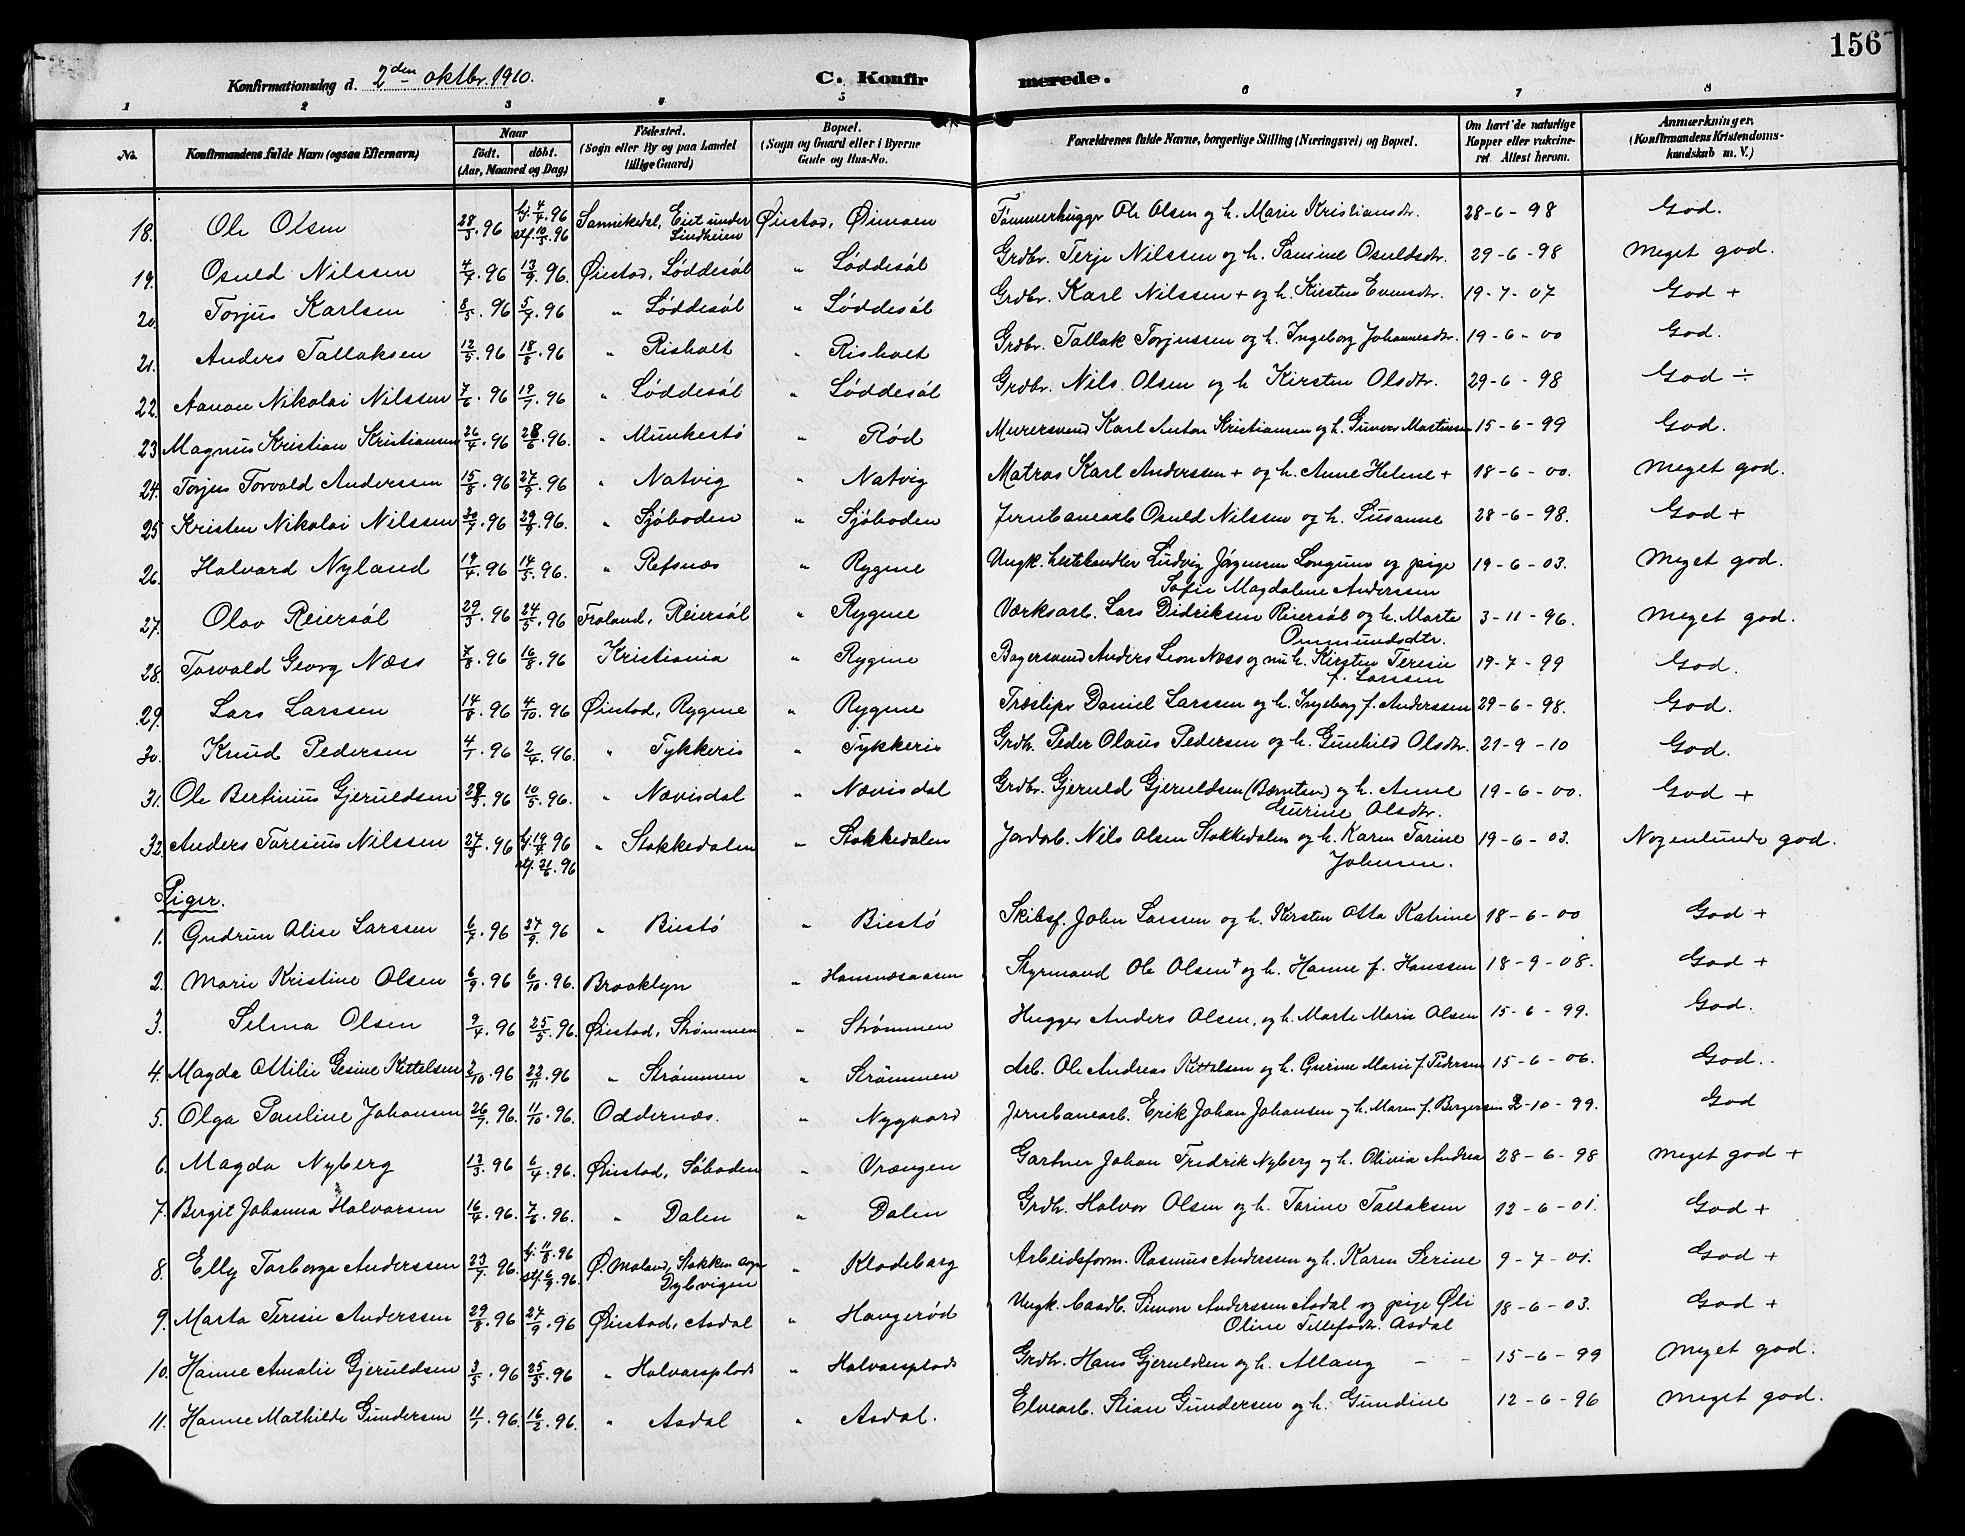 156
Konfirmationsdag d. 2den oktbr. 1910. C. Konfirmerede.
1 2 3 4 5 6 7 8
No. Konfirmandens fulde Navn (ogsaa Efternavn) Naar født. døbt. (Aar, Maaned og Dag) Fødested. (Sogn eller By og paa Landet tillige Gaard) Bopæl. (Sogn og Gaard eller i Byerne Gade og Hus-No. Forældrenes fulde Navne, borgerlige Stilling (Næringsvei) og Bopæl. Om havt de naturlige Kopper eller vakcineret. Attest herom. Anmærkninger. (Konfirmandens Kristendomskundskab m. V.)
18. Ole Olsen 28/3.96 hj. 4/4.96 stf. 10/5.96 Sannikedal, Eiet under Lindheien Øiestad, Øimoen Tømmerhugger Ole Olsen og h. Marie Kristiansdr. 28-6-98 God.
19. Osuld Nilssen 4/7.96 13/9.96. Øiestad, Løddesøl " Løddesøl Grdbr. Terje Nilssen og h. Samine Osuldsdr. 29-6-98 Meget god.
20. Torjus Karlsen 8/5.96 5/7.96 " Løddesøl " Løddesøl Grdbr. Karl Nilssen + og h. Kirsten Evensdr. 19-7-07 God +
21. Anders Tallaksen 12/5.96 18/8.96 " Risholt " Risholt Grdbr. Tallak Torjussen og h. Ingeborg Johannesdr. 19-6-00 God.
22. Aanon Nikolai Nilssen 7/6.96 19/7.96 " Løddesøl " Løddesøl Grdbr. Nils Olsen og h Kirsten Olsdtr. 29-6-98 God ÷
23 Magnus Kristian Kristiansen 26/4.96 28/6.96. " Munkestø " Rød Murersvend Karl Anton Kristiansen og h. Gunvor Martinsen 15-6-99 God.
24. Torjus Torvald Anderssen 15/8.96 27/9.96 " Natvig " Natvig Matros Karl Anderssen + og h. Anne Helene + 18-6-00. Meget god.
25 Kristen Nikolai Nilssen 30/7.96 29/9.96. " Sjøboden " Sjøboden Jernbanearb Osuld Nilssen og h. Susanne 28-6-98. God +
26. Halvard Nyland 19/4.96 14/5.96. " Refsnæs " Rygene Ungk. hestehandler Ludvig Jørgensen Longum og pige Sofie Magdalene Anderssen 19-6-03. Meget god.
27. Olav Reiersøl 29/3.96 24/5.96 Froland, Reiersøl " Rygene Værksarb. Lars Didriksen Reiersøl og h. Marte Ommundsdtr. 3-11-96. Meget god.
28. Torvald Georg Næss 7/8.96 16/8.96 Kristiania " Rygene Bagersvend Anders Leon Næss og nu h. Kirsten Teresie f. Larssen 19-7-99 God.
29. Lars Larssen 14/8.96 4/10.96 Øiestad, Rygene " Rygene Træsliper Daniel Larssen og h. Ingeborg f. Anderssen 29-6-98. God.
30. Knud Pedersen 4/1.96 2/4.96. " Tykkeris " Tykkeris Grdbr. Peder Olaus Pedersen og h. Gunhild Olsdr. 21-9-10 God.
31. Ole Bertinius Gjeruldsen 29/3.96 10/5.96. " Nævisdal " Nævisdal Grdbr. Gjeruld Gjeruldsen (Berntsen) og h. Anne Gurine Olsdtr. 19-6-00. God +
32. Anders Taresius Nilssen 24/3.96 hj. 19/4.96 stf. 21/6.96 " Stokkedalen " Stokkedalen Jordarb. Nils Olsen Stokkedalen og h. Karen Tarine Johnsen. 19-6-03. Nogenlunde god.
Piger.
1. Gudrun Alise Larssen 6/7.96 27/9.96 " Biestø " Biestø Skibsf. John Larssen og h. Kirsten Otta Katrine 18-6-00 God +
2. Marie Kristine Olsen 6/9.96 6/10.96. Brooklyn " Hamnesaasen Styrmand Ole Olsen + og h. Hanne f. Hanssen 18-9-08. God +
3. Selma Olsen 9/4.96 25/5.96. Øiestad, Strømmen " Strømmen Hugger Anders Olsen, og h. Marte Marie Olsen 15-6-99. God.
4. Magda Otilie Gesine Kittelsen 2/10.96 22/11.96 " Strømmen " Strømmen Arb. Ole Andreas Kittelsen og h. Gurine Marie f. Pedersen 15-6-06. God.
5. Olga Pauline Johansen 26/7.96. 11/10.96. Oddernæs. " Nygaard Jernbanearb. Erik Johan Johansen og h. Maren f. Bergersen 2-10-99. God
6. Magda Nyberg 13/3.96 6/4.96. Øiestad, Søboden " Vrængen Gartner Johan Fredrik Nyberg og h. Olivia Andrea 28-6-98 Meget god +
7. Bergit Johanna Halvorsen 16/4.96. 7/6.96. " Dalen " Dalen Grdbr. Halvor Olsen og h. Tarine Tallaksen 12-6-01. God +
8. Elly Torborga Anderssen 23/7.96. hj. 11/8.96 stf. 6/9.96. Ø. Moland, Stokken sogn Dybvigen " Klodeborg Arbeidsform. Rasmus Anderssen og h. Karen Serine 9-7-01. God +
9. Marta Teresie Anderssen 29/8.96 27/9.96 Øiestad, Asdal " Haugerød Ungk. Simon Anderssen Asdal og pige Øli Oline Tellefsdr. Asdal 18-6-03. God +
10. Hanne Amalie Gjeruldsen 3/5.96 25/5.96 " Halvorsplads " Halvorsplads Grdbr. Hans Gjeruldsen og h. Allaug - - 15-6-99 Meget god.
11. Hanne Mathilde Gundersen 11/1.96. 16/2.96. " Asdal " Asdal. Elvearb. Stian Gundersen og h. Gundine 12-6-96 Meget god.